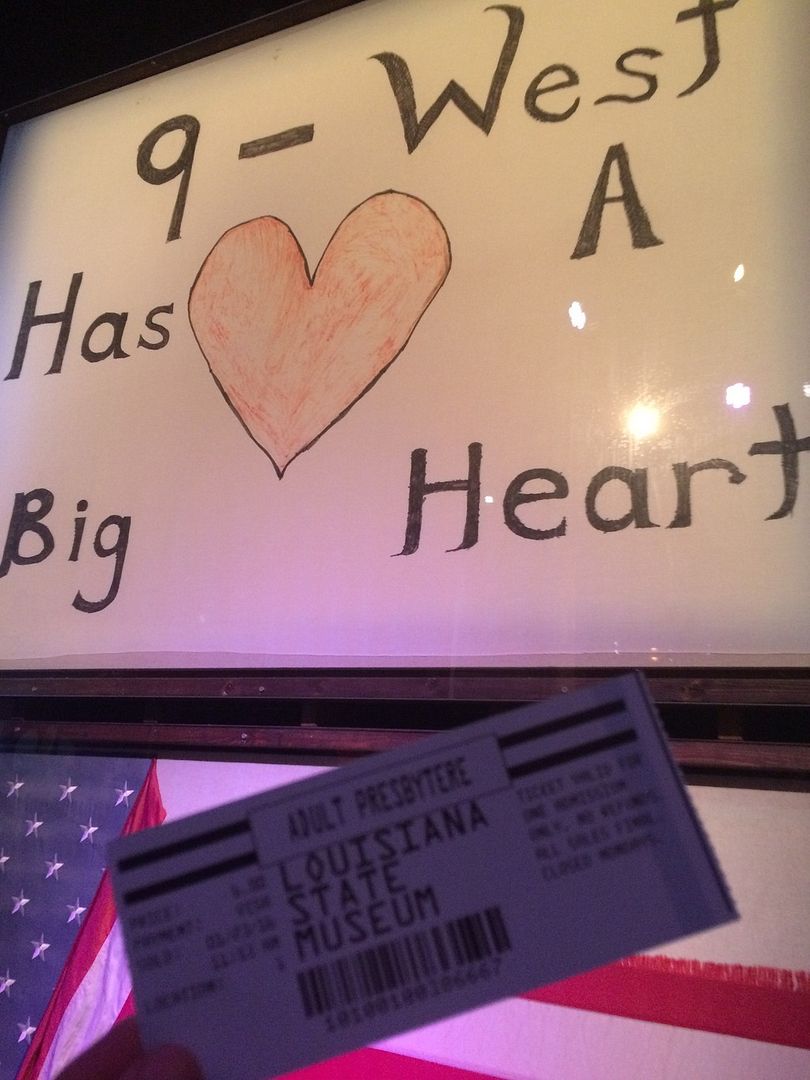 9 - West
Has A
Big Heart
ADULT PRESBYTERE
LOUISIANA
STATE
MUSEUM
TICKET VALID FOR
ONE ADMISSION
ONLY. NO REFUNDS.
ALL SALES FINAL.
CLOSED MONDAYS.
PRICE:
PAYMENT:
SOLD:
LOCATION: